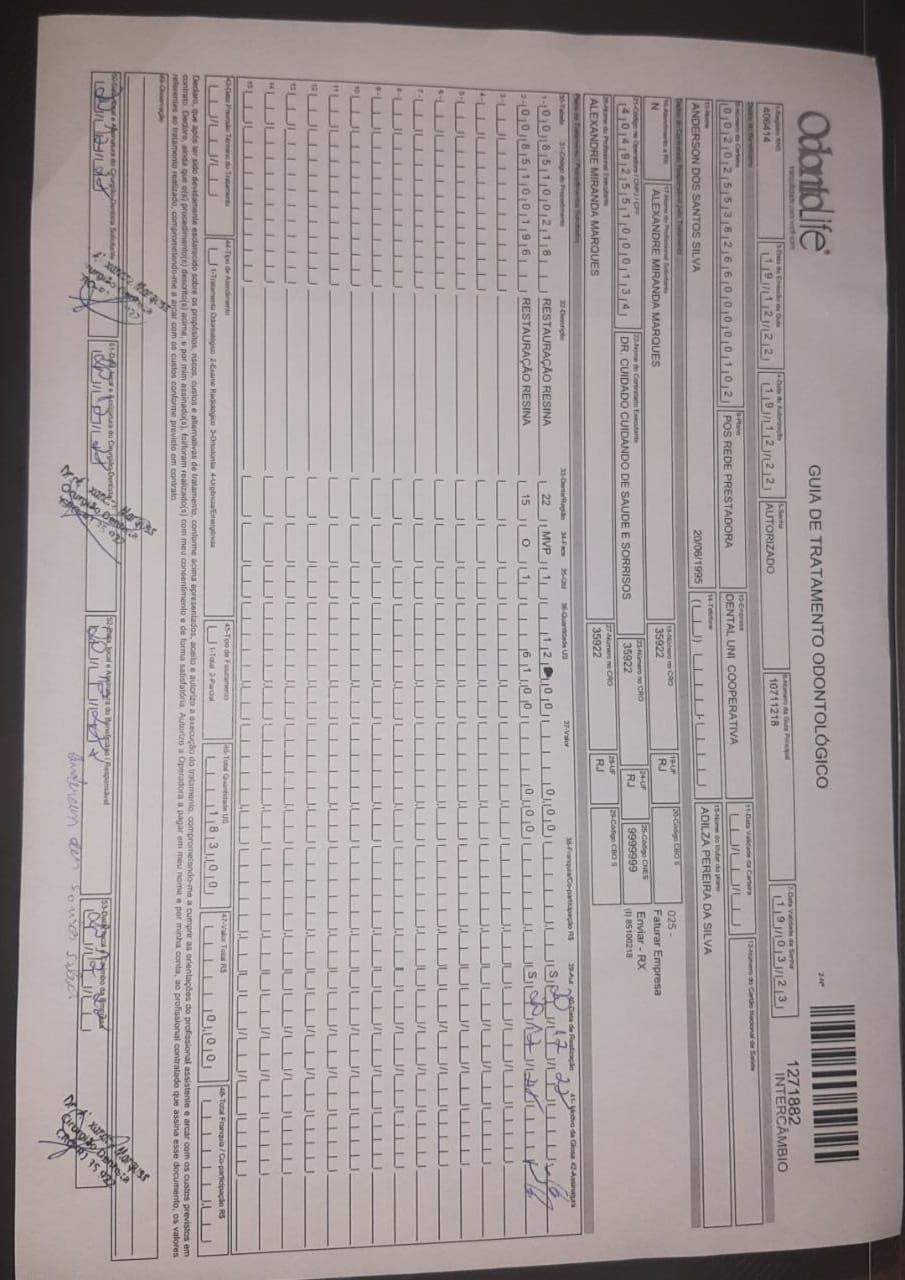 OdontoLife®
GUIA DE TRATAMENTO ODONTOLÓGICO
2-Nº
1271882
INTERCÂMBIO
1-Registro ANS
406414
3-Data de Emissão da Guia
19/12/22
4-Data de Autorização
19/12/22
5-Senha
AUTORIZADO
6-Número da Guia Principal
10711218
7-Data Validade da Senha
19/03/23
Dados do Beneficiário
8-Número da Carteira
00202553826600000102
9-Plano
POS REDE PRESTADORA
10-Empresa
DENTAL UNI COOPERATIVA
11-Data Validade da Carteira
12-Número do Cartão Nacional de Saúde
13-Nome
ANDERSON DOS SANTOS SILVA
20/06/1995
14-Telefone
15-Nome do titular do plano
ADILZA PEREIRA DA SILVA
16-Atendimento a RN
N
17-Nome do Profissional Solicitante
ALEXANDRE MIRANDA MARQUES
18-Número no CRO
35922
19-UF
RJ
20-Código CBO S
025 -
Faturar Empresa
21-Código na Operadora / CNPJ / CPF
40492551000134
22-Nome do Contratado Executante
DR. CUIDADO CUIDANDO DE SAUDE E SORRISOS
23-Número no CRO
35922
24-UF
RJ
25-Código CNES
9999999
Enviar - RX
(I) 85100218
26-Nome do Profissional Executante
ALEXANDRE MIRANDA MARQUES
27-Número no CRO
35922
28-UF
RJ
29-Código CBO S
30-Tabela 31-Código do Procedimento 32-Descrição 33-Dente/Região 34-Face 35-Qtd 36-Quantidade US 37-Valor 38-Franquia/Co-participação R$ 39-Aut 40-Data de Realização 41-Motivo da Glosa 42-Assinatura
1- 00 85100218 RESTAURAÇÃO RESINA 22 MVP 1 122,00 0,00 S
2- 00 85100196 RESTAURAÇÃO RESINA 15 O 1 61,00 0,00 S
3-
4-
5-
6-
7-
8-
9-
10
11
12
13
14
15
43-Data Previsão Término do Tratamento
44-Tipo de Atendimento
1-Tratamento Odontológico 2-Exame Radiológico 3-Ortodontia 4-Urgência/Emergência
45-Tipo de Faturamento
1-Total 2-Parcial
46-Total Quantidade US
183,00
47-Valor Total R$
0,00
48-Total Franquia / Co-participação R$
Declaro, que após ter sido devidamente esclarecido sobre os propósitos, riscos, custos e alternativas de tratamento, conforme acima apresentados, aceito e autorizo a execução do tratamento, comprometendo-me a cumprir as orientações do profissional assistente e arcar com os custos previstos em
contrato. Declaro, ainda que o(s) procedimento(s) descrito(s) acima, e por mim assinado(s), foi/foram realizado(s) com meu consentimento e de forma satisfatória. Autorizo a Operadora a pagar em meu nome e por minha conta, ao profissional contratado que assina esse documento, os valores
referentes ao tratamento realizado, comprometendo-me a arcar com os custos conforme previsto em contrato.
49-Observação